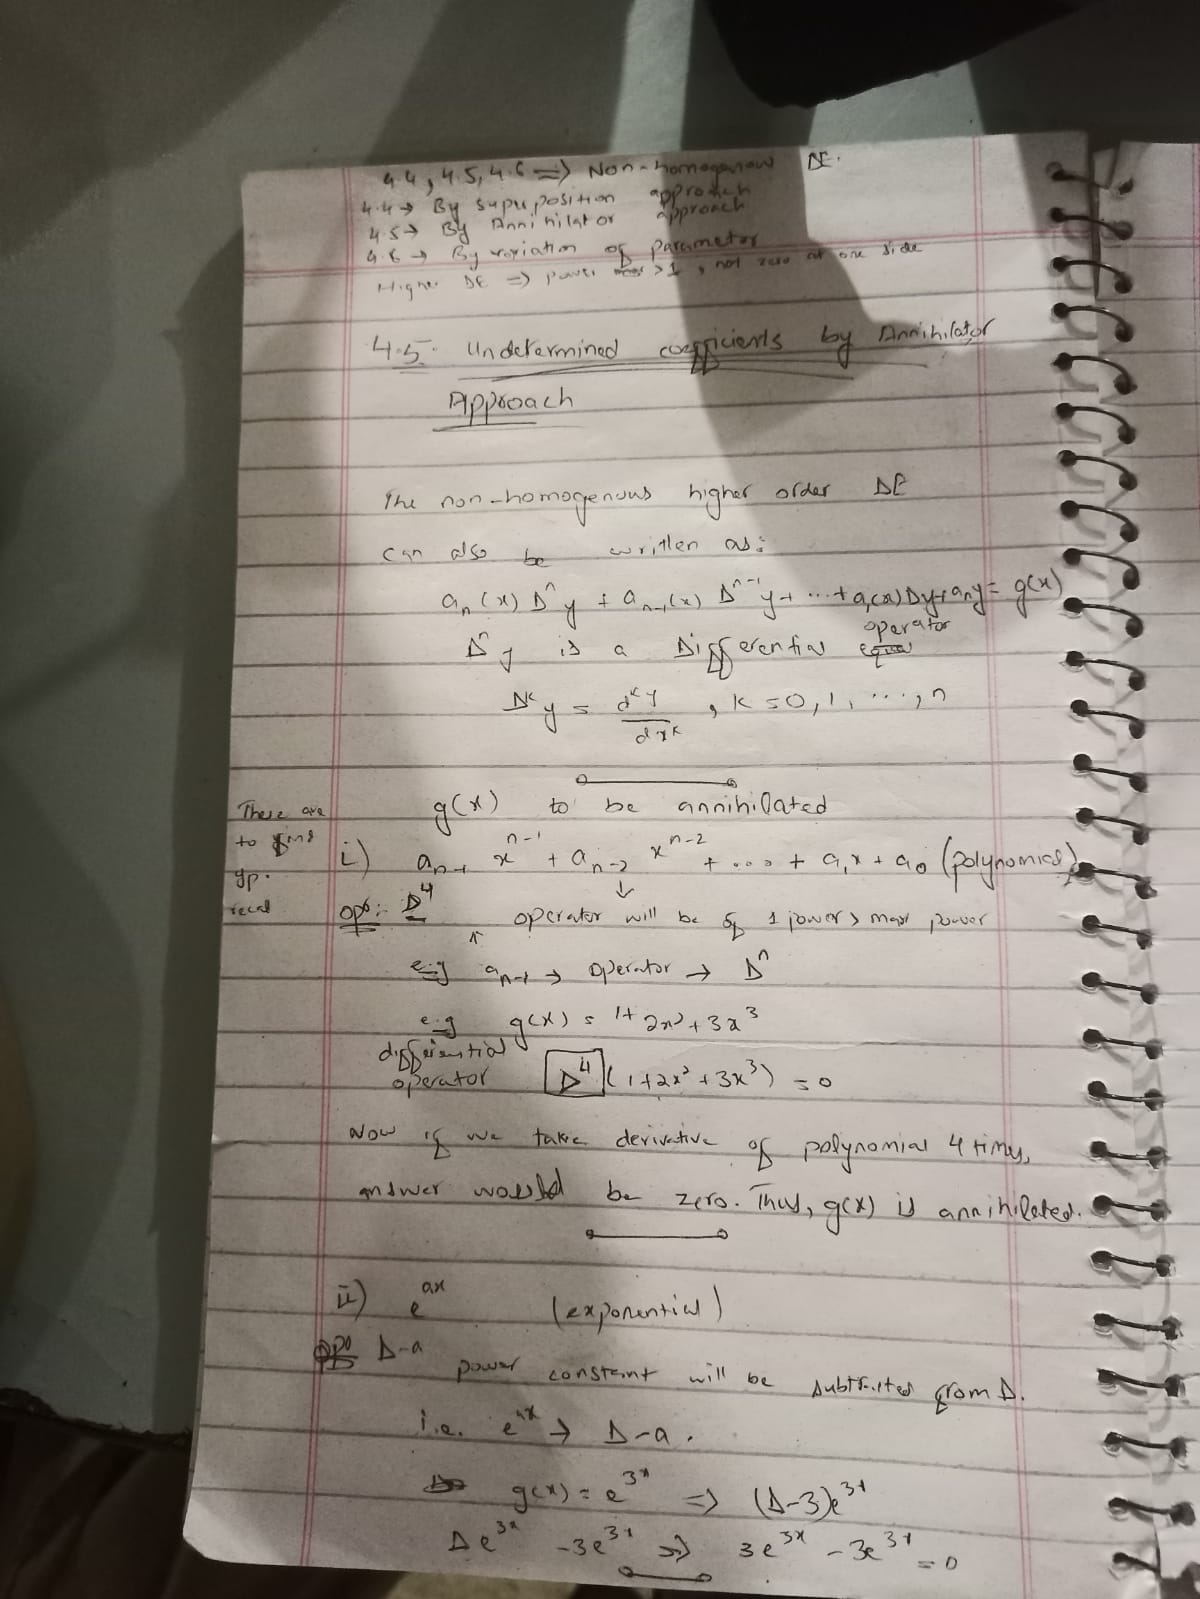 4.4, 4.5, 4.6 => Non-homogenous DE.
4.4 → By superposition approach
4.5 → By Annihilator approach
4.6 → By variation of parameter
Higher DE => power > 1, not zero at one side
4.5. Undetermined coefficients by Annihilator
Approach
The non-homogenous higher order DE
can also be written as:
aₙ(x) Dⁿy + aₙ₋₁(x) Dⁿ⁻¹y + ... + a₁(x)Dy + aₙy = g(x)
operator
Dⁿy is a Differential
Dᵏy = dᵏy/dxᵏ, k = 0, 1, ..., n
g(x) to be annihilated
There are
to find
yp.
recal
i) aₙ₋₁ xⁿ⁻¹ + aₙ₋₂ xⁿ⁻² + ... + a₁x + a₀ (polynomial)
opo: D⁴
↓
operator will be of 1 power > max power
e.g aₙ₋₁ → operator → Dⁿ
e.g g(x) = 1 + 2x² + 3x³
differential
operator D⁴ (1+2x²+3x³) = 0
Now if we take derivative of polynomial 4 times,
answer would be zero. Thus, g(x) is annihilated.
ii) eᵃˣ (exponential)
opo D-a
power constant will be subtracted from D.
i.e. eᵃˣ → D-a.
g(x) = e³ˣ => (D-3)e³ˣ
De³ˣ - 3e³ˣ => 3e³ˣ - 3e³ˣ = 0